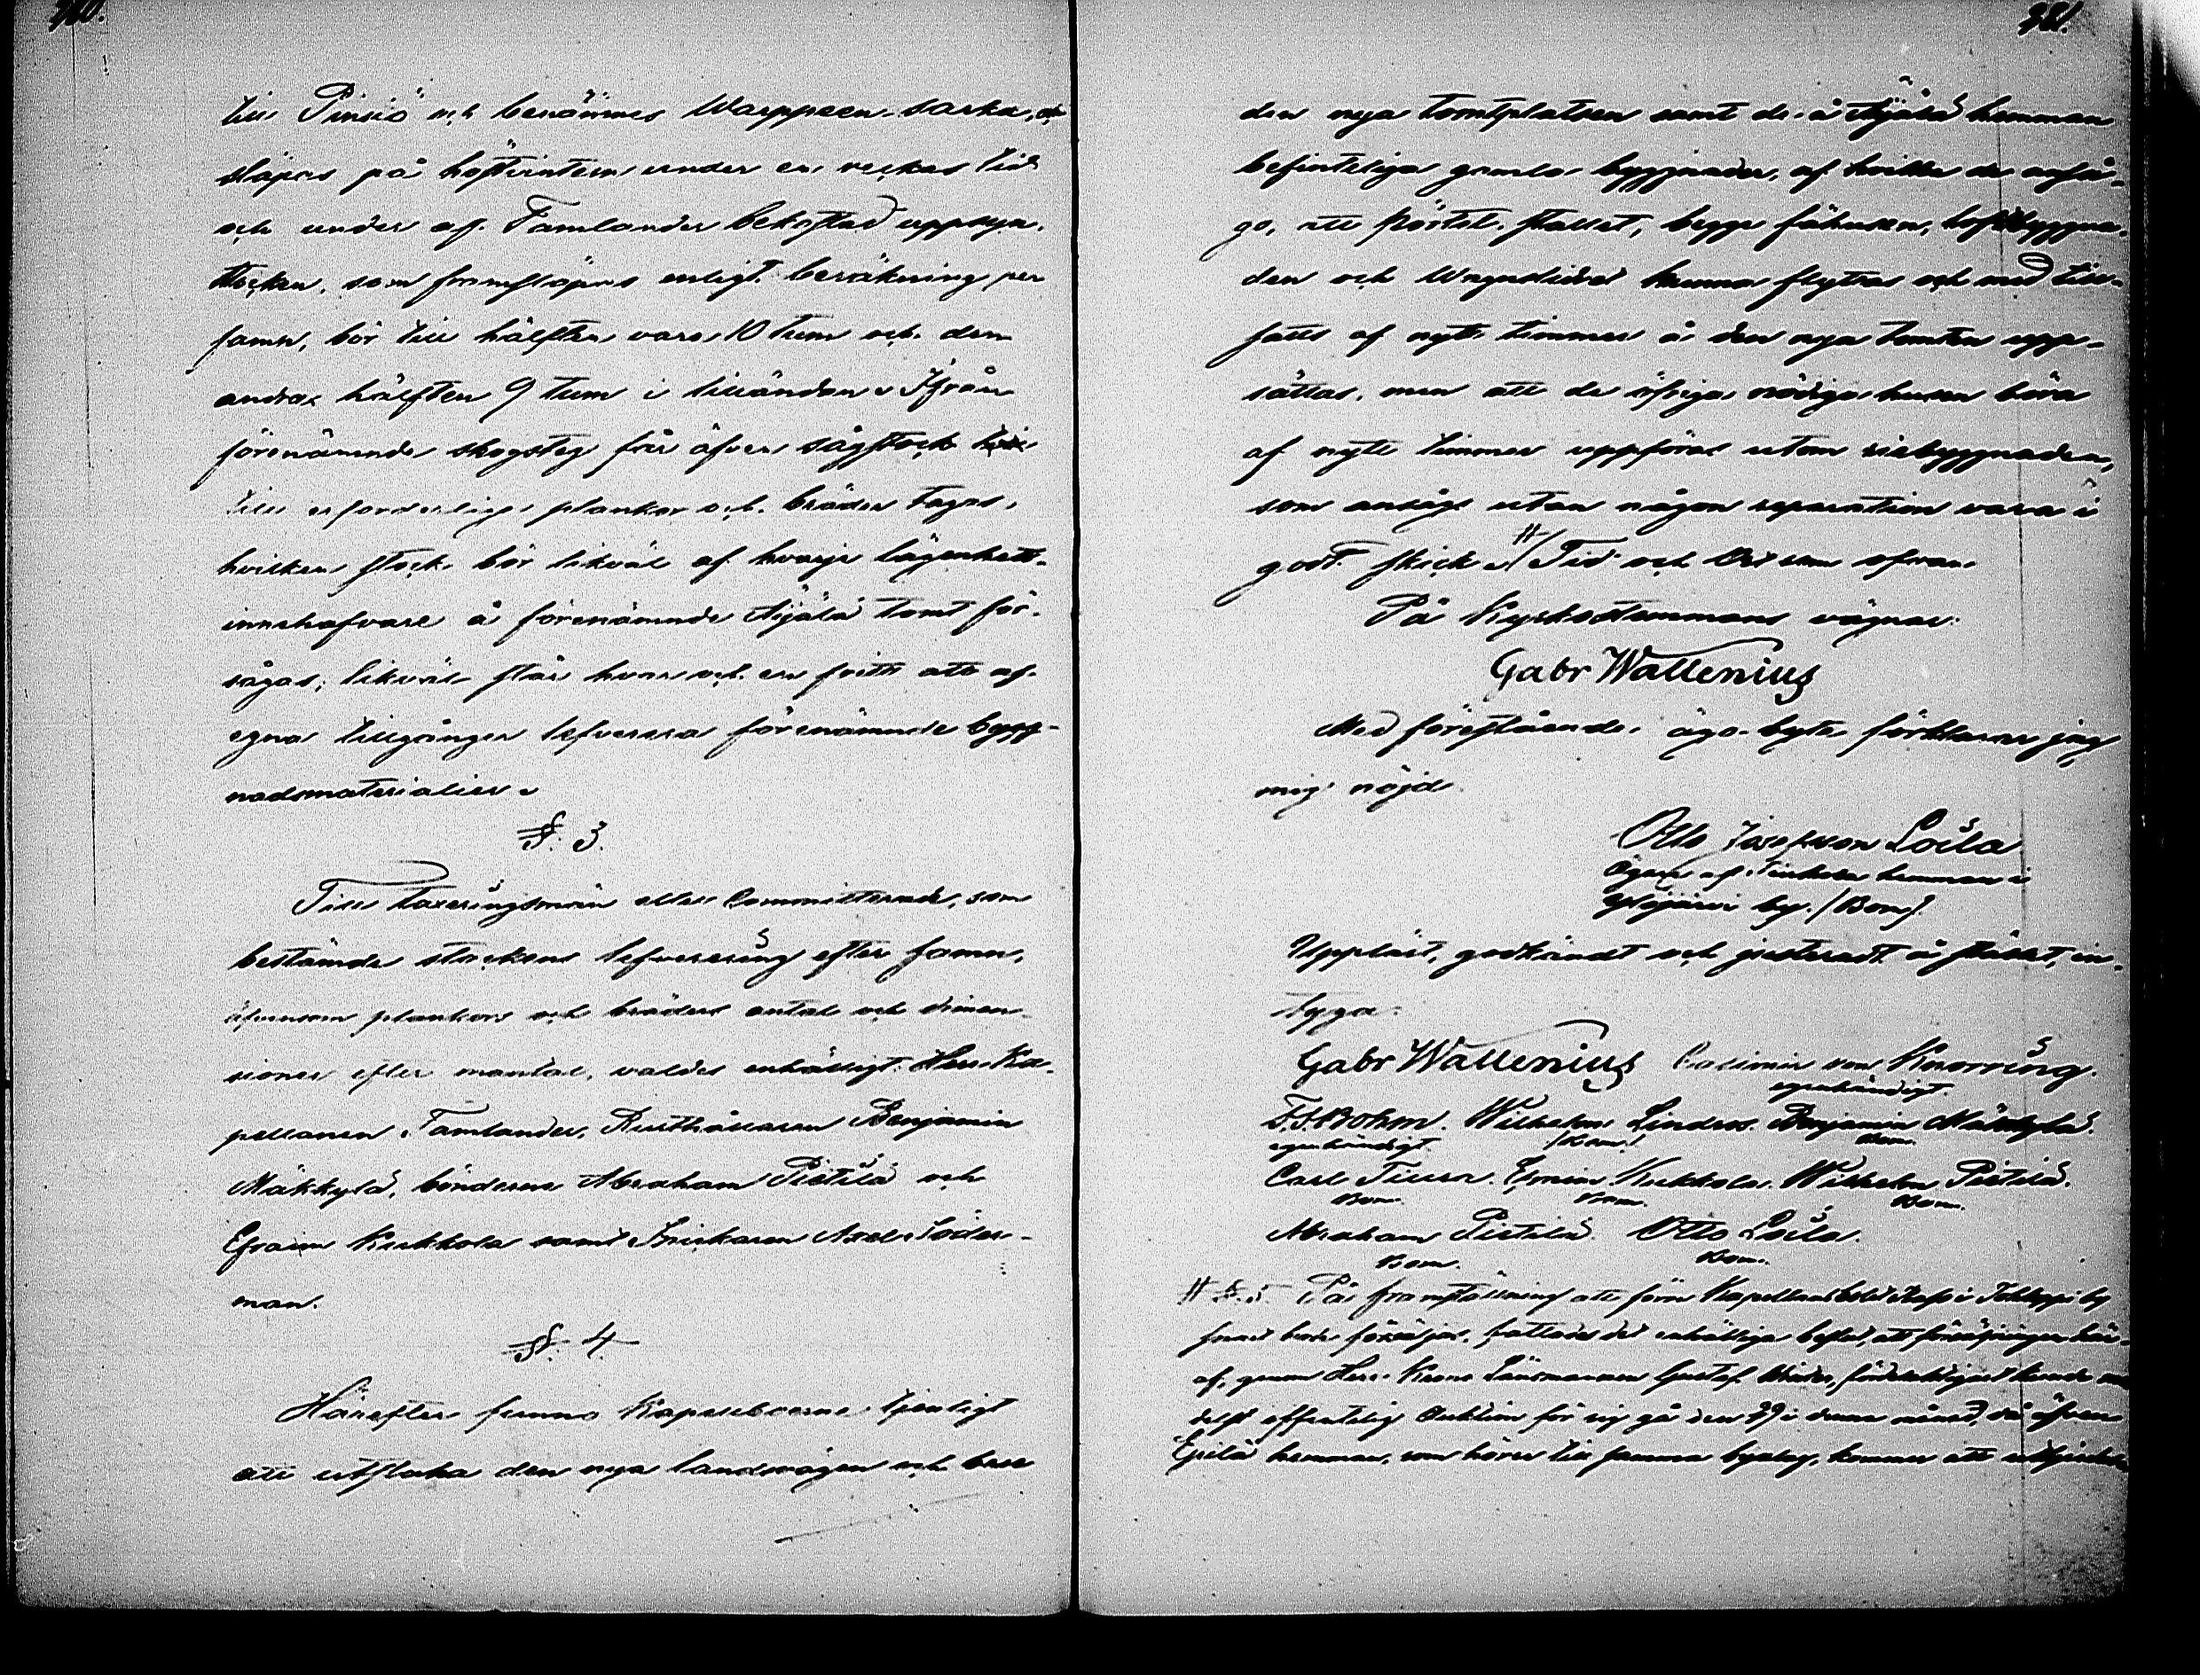 till Pinsiö och benämnes Warppeen-sarka, och
släpas på höstvintern under en veckas tid
och under af Tamlander bekostad uppsyn.
Stocken, som framsläpas enligt beräkning per
famn, bör till hälften vara 10 tum och den
andra hälften 9 tum i lilländan. Ifrån
förenämnde skogsteg får äfven sågstock
till erforderliga plankor och bräder tagas,
hvilken stock bör likväl af hvarje lägenhets-
innehafvare å förenämnde Äijälä tomt för-
sågas; likväl står hvar och en fritt att af
egna tillgångar lefverera förenämnde bygg-
nadsmaterialier.
§. 3.
Till taxeringsmän eller Committerade, som
bestämde stockens lefverering efter famn,
äfvensom plankors och bräders antal och dimen-
sioner efter mantal, valdes enhälligt Herr Ka-
pellanen Tamlander, Rusthållaren Benjamin
Mäkkylä, bönderne Abraham Pietilä och
Efraim Kukkola samt Snickaren Axel Söder-
man.
§. 4.
Härefter funno Kapellboerne tjenligt
att utstaka den nya landsvägen och bese
381.
den nya tomtplatsen samt de å Äijälä hemman
befinteliga gamla byggnader, af hvilka de anså-
go, att pörtet, stallet, begge fähusen, loftsbyggna-
den och Wagnslidret kunna flyttas och med till-
satts af nytt timmer å den nya tomten upp-
sättas, men att de öfriga nödiga husen böra
af nytt timmer uppföras utom riebyggnaden,
som ansågs utan någon reparation vara i
godt skick. # Tid och Ort som ofvan.
På Kyrkostämmans vägnar:
Gabr Wallenius
Med förestående ägo-byte förklarar jag
mig nöjd
Otto Josefsson Loila
Ägare af hemman i
Ylöjärvi by. (Bom).
Uppläst, godkändt och justeradt å stället, in-
tyga:
Gabr Wallenius Casimir von Knorring.
egenhändigt.
F. Bohm. Wilhelm Linders. Benjamin Mäkkylä.
egenhändigt (Bom.) Bom.
Carl Tiura. Efraim Kukkola. Wilhelm Pietilä.
Bom. Bom. Bom.
Abraham Pietilä. Otto Loila.
Bom. Bom.
# §. 5. På framställning att förra Kapellansbolet i by
borde försäljas, fattades det enhälliga beslut, att försäljningen här-
af, genom Herr Krono Länsmannen Gustaf
delst offentelig Auktion för sig gå den 29 i denna månad, då äfven
hemman, som hörer till samma bolag, kommer att